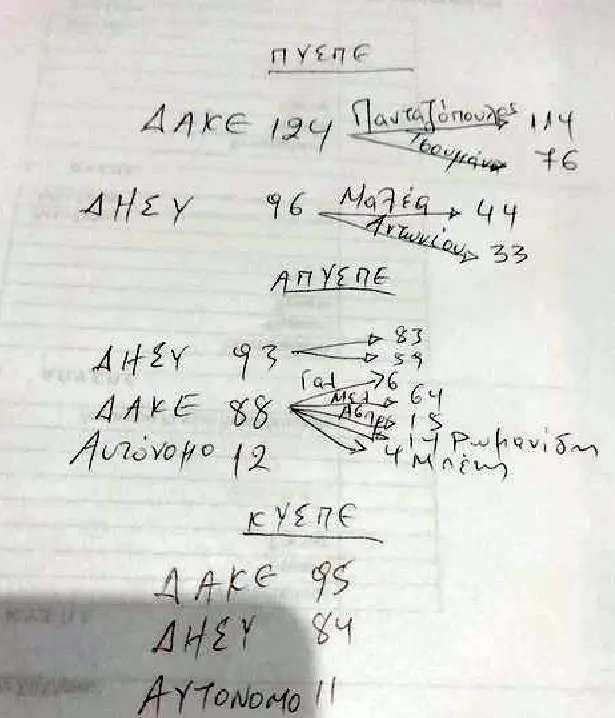 ΠΥΣΠΕ
ΔΑΚΕ 124 Πανταζόπουλος 114
Τσουμάνη 76
ΔΗΣΥ 96 Μαλέα 44
Αντωνίου 33
ΑΠΥΣΠΕ
ΔΗΣΥ 93 83
59
ΔΑΚΕ 88 Γατ 6
Μελ 64
Ασπρ 15
14 Ρωμανίδης
4 Μπέκης
Αυτόνομο 12
ΚΥΣΠΕ
ΔΑΚΕ 95
ΔΗΣΥ 84
ΑΥΤΟΝΟΜΟ 11